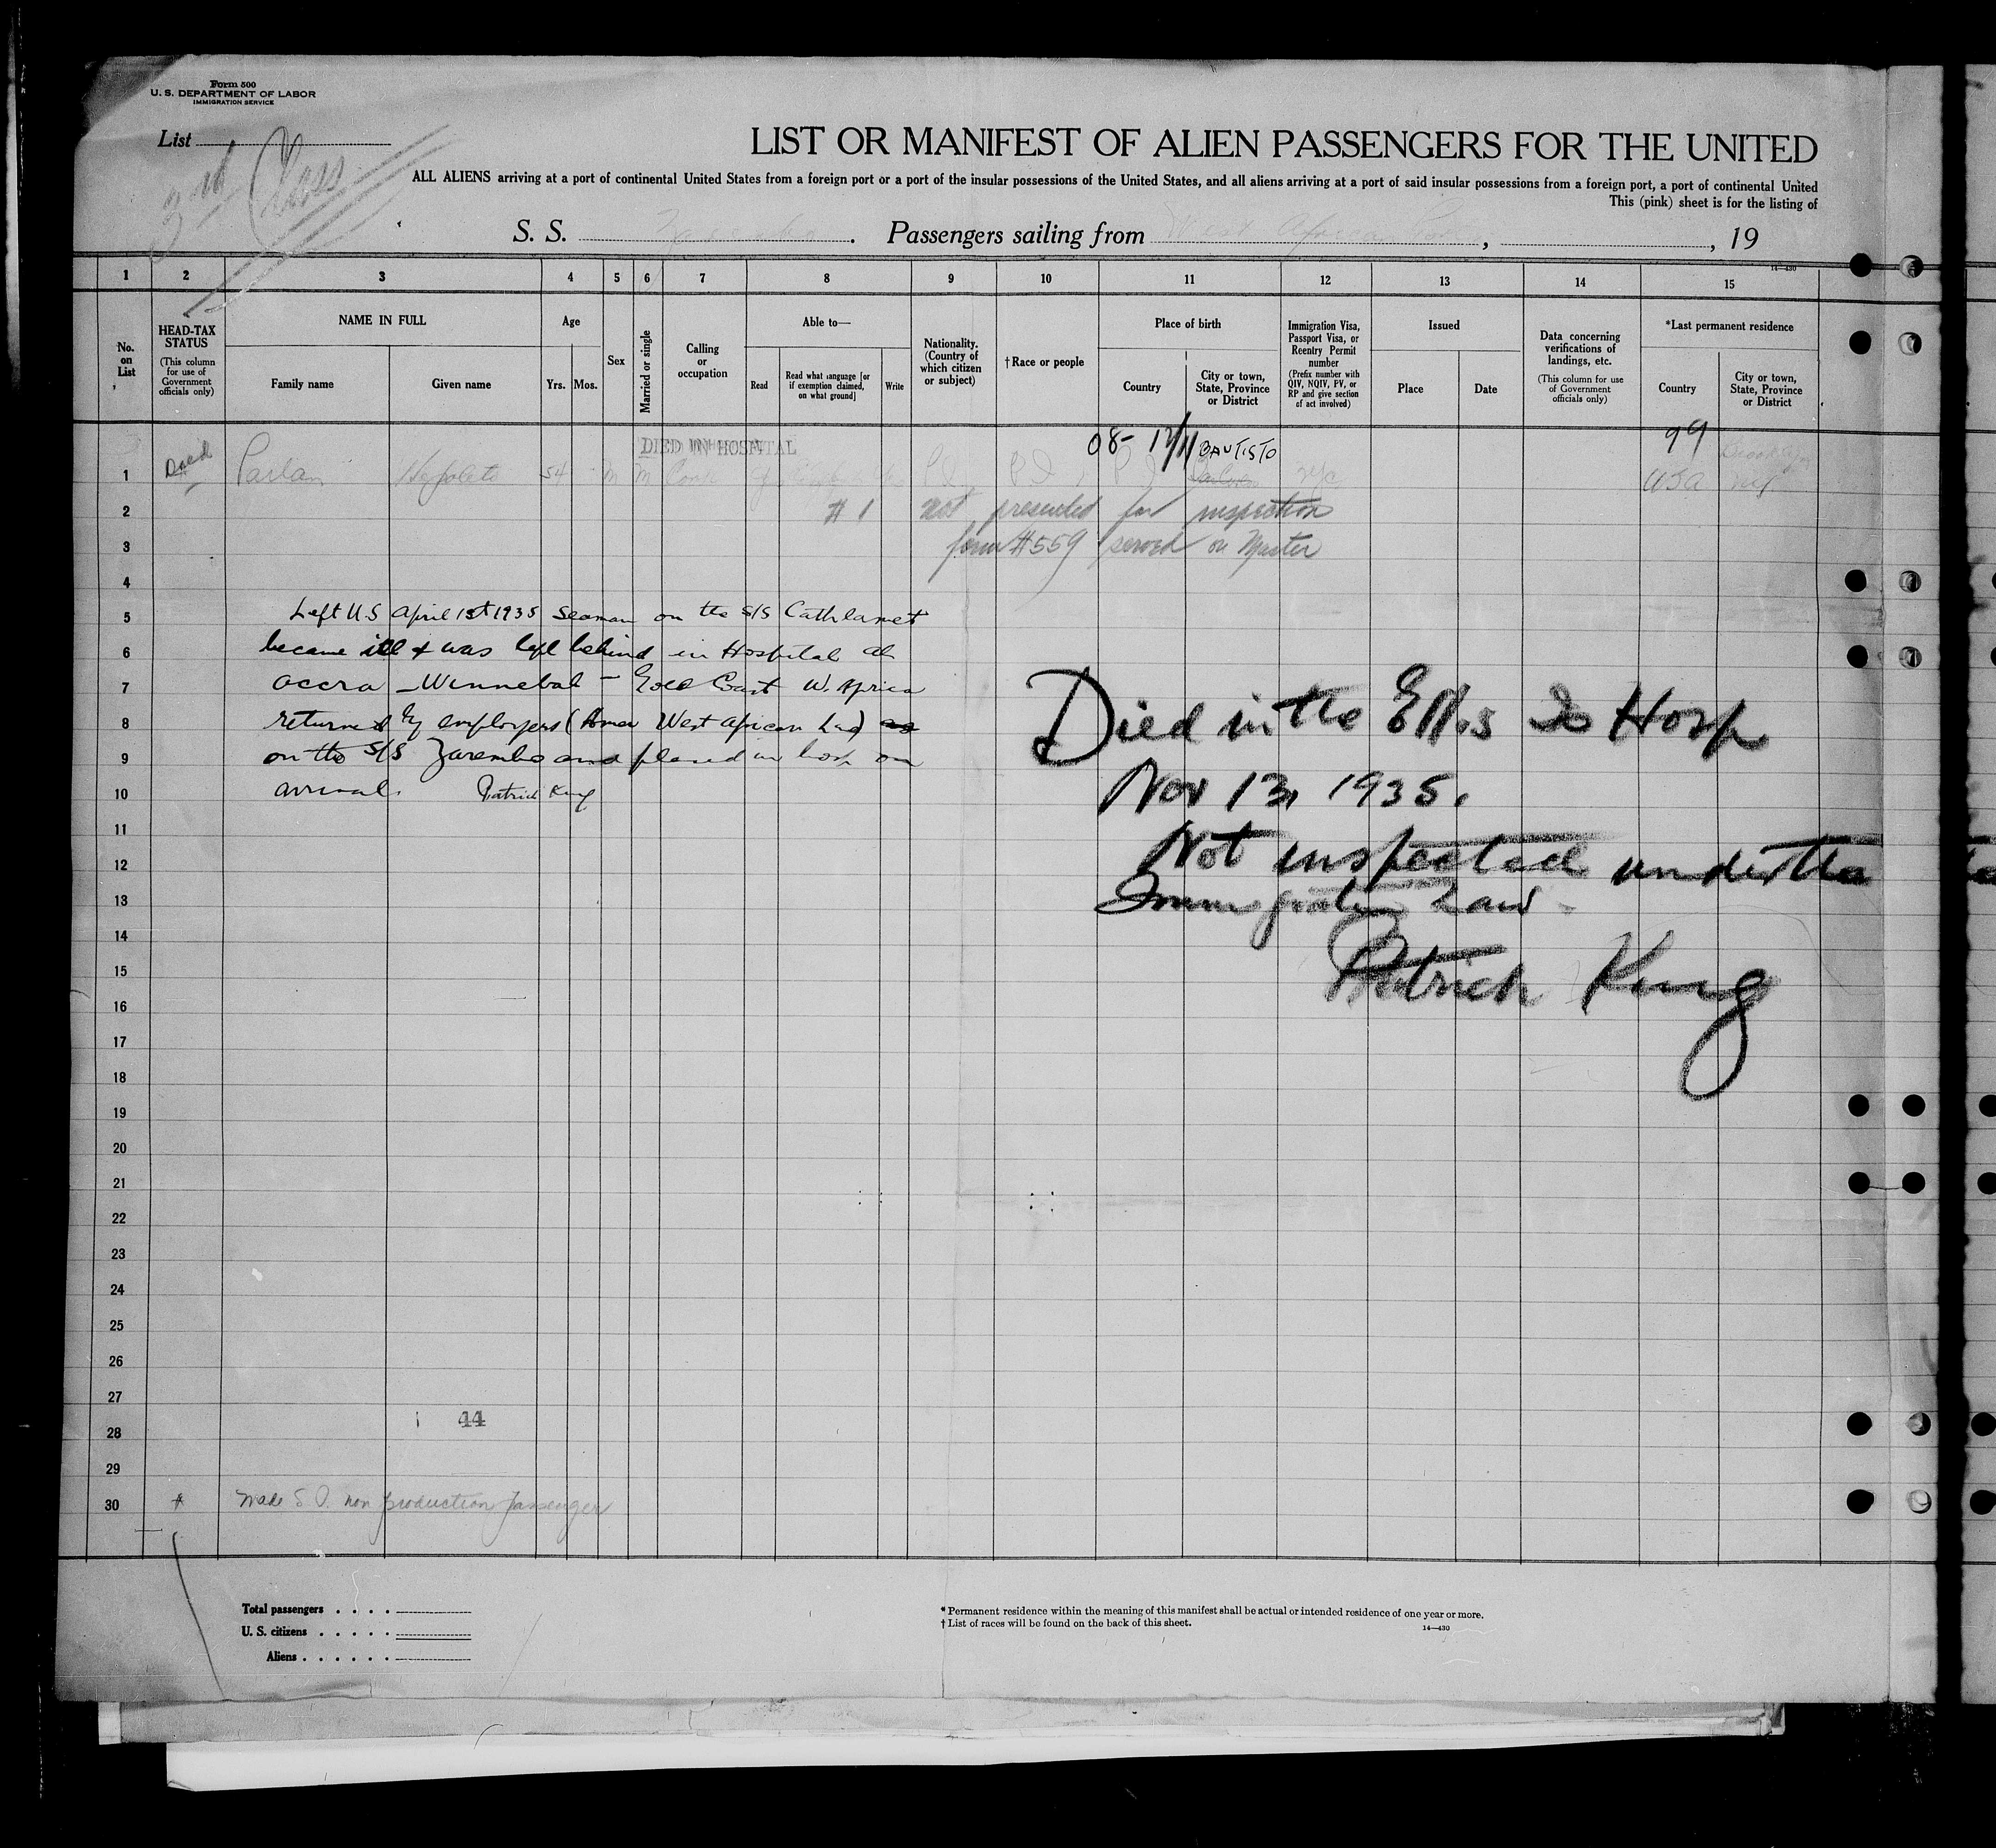 Form 500
U. S. DEPARTMENT OF LABOR
IMMIGRATION SERVICE
List
3rd Class
LIST OR MANIFEST OF ALIEN PASSENGERS FOR THE UNITED
ALL ALIENS arriving at a port of continental United States from a foreign port or a port of the insular possessions of the United States, and all aliens arriving at a port of said insular possessions from a foreign port, a port of continental United
This (pink) sheet is for the listing of
S. S. Zarembo. Passengers sailing from West African, , 19
14—430
1 2 3 4 5 6 7 8 9 10 11 12 13 14 15
No. on List
HEAD-TAX STATUS
(This column for use of Government officials only)
NAME IN FULL
Family name
Given name
Age
Yrs.
Mos.
Sex
Married or single
Calling or occupation
Able to—
Read
Read what language [or if exemption claimed, on what ground]
Write
Nationality. (Country of which citizen or subject)
† Race or people
Place of birth
Country
City or town, State, Province or District
Immigration Visa, Passport Visa, or Reentry Permit number
(Prefix number with QIV, NQIV, PV, or RP and give section of act involved)
Issued
Place
Date
Data concerning verifications of landings, etc.
(This column for use of Government officials only)
*Last permanent residence
Country
City or town, State, Province or District
DIED IN HOSPITAL
08- 17/11 BAUTISTO 99 Brooklyn
1 Died Parlan Hypoleto 54 M M P I P I P I USA NY
2 #1 not presented for inspection
3 form #559 served on Master
4
5 Left U.S April 1st 1935 seaman on the S/S Cathlamet
6 became ill & was left behind in Hospital at
7 accra - Winnebah - Gold Coast W. Africa
8 returned by employers (Amer West African Line)
9 on the S/S Zarembo and placed in hosp on
10 arrival. Patrick King
Died in the Ellis Is Hosp
Nov 13, 1935.
Not inspected under the
Immigration Law -
Patrick King
11
12
13
14
15
16
17
18
19
20
21
22
23
24
25
26
27
28 44
29
30 made S.O. non production passenger
Total passengers
U. S. citizens
Aliens
* Permanent residence within the meaning of this manifest shall be actual or intended residence of one year or more.
† List of races will be found on the back of this sheet.
14—430